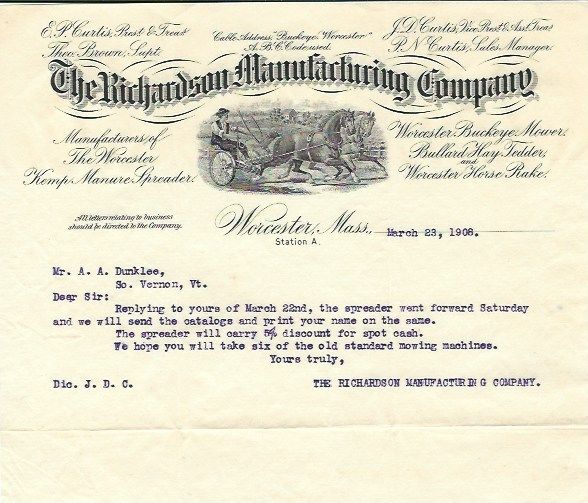 E.P. Curtis, Prest. & Treas.
Theo. Brown, Supt.
Cable Address, "Buckeye, Worcester"
A.B.C. Code used.
J.D. Curtis, Vice Prest. & Asst. Treas.
P.N. Curtis, Sales Manager.
The Richardson Manufacturing Company
Manufacturers of
The Worcester
Kemp Manure Spreader.
Worcester Buckeye Mower,
Bullard Hay Tedder,
and
Worcester Horse Rake.
All letters relating to business
should be directed to the Company.
Worcester, Mass., March 23, 1908.
Station A.
Mr. A. A. Dunklee,
So. Vernon, Vt.
Dear Sir:
Replying to yours of March 22nd, the spreader went forward Saturday
and we will send the catalogs and print your name on the same.
The spreader will carry 5% discount for spot cash.
We hope you will take six of the old standard mowing machines.
Yours truly,
Dic. J. D. C. THE RICHARDSON MANUFACTURING COMPANY.